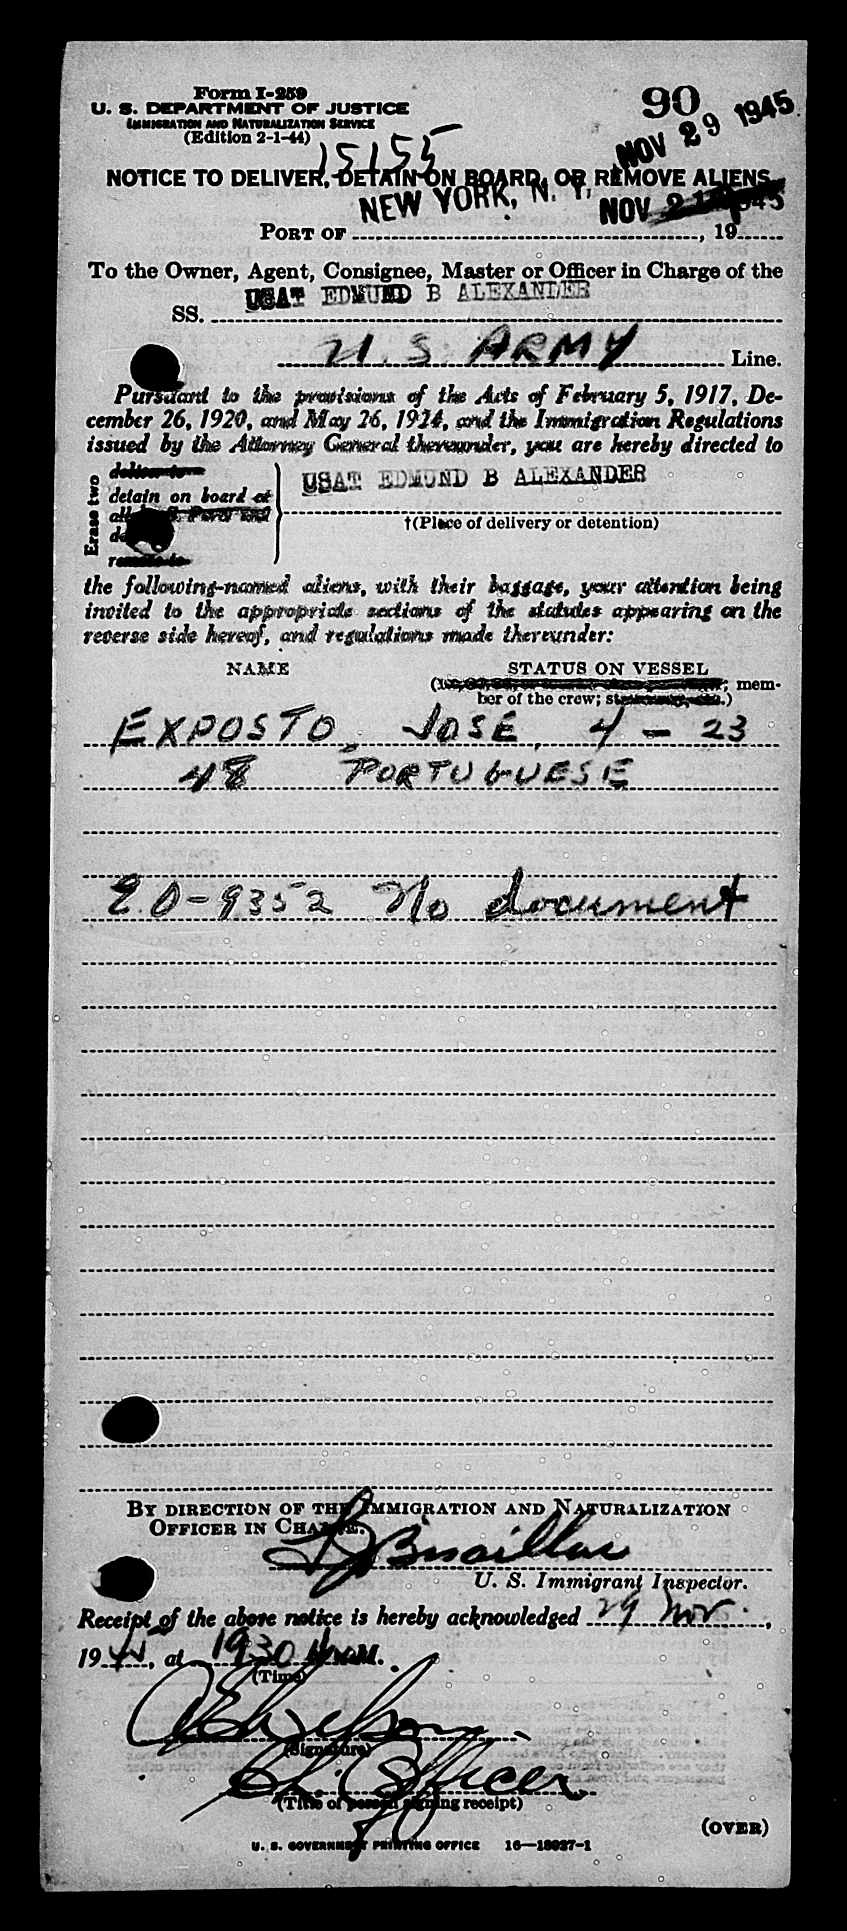 Form I-259
U. S. DEPARTMENT OF JUSTICE
IMMIGRATION AND NATURALIZATION SERVICE
(Edition 2-1-44)
90
NOV 29 1945
15155
NOTICE TO DELIVER, DETAIN ON BOARD, OR REMOVE ALIENS
NEW YORK, N. Y. NOV 1945
PORT OF , 19
To the Owner, Agent, Consignee, Master or Officer in Charge of the
SS. USAT EDMUND B ALEXANDER
U.S. ARMY Line.
Pursuant to the provisions of the Acts of February 5, 1917, De-
cember 26, 1920, and May 26, 1924, and the Immigration Regulations
issued by the Attorney General thereunder, you are hereby directed to
Erase two
deliver to
detain on board at
USAT EDMUND B ALEXANDER
†(Place of delivery or detention)
remove to
the following-named aliens, with their baggage, your attention being
invited to the appropriate sections of the statutes appearing on the
reverse side hereof, and regulations made thereunder:
NAME STATUS ON VESSEL
mem-
ber of the crew;
EXPOSTO, JOSE, 4 - 23
48 PORTUGUESE
20-9352 No document
BY DIRECTION OF THE IMMIGRATION AND NATURALIZATION
OFFICER IN CHARGE.
U. S. Immigrant Inspector.
Receipt of the above notice is hereby acknowledged 29 Nov.,
1945, at 1930 M.
(Time)
(Signature)
Ch. Officer
(Title of person signing receipt)
(OVER)
U. S. GOVERNMENT PRINTING OFFICE 16—18027-1